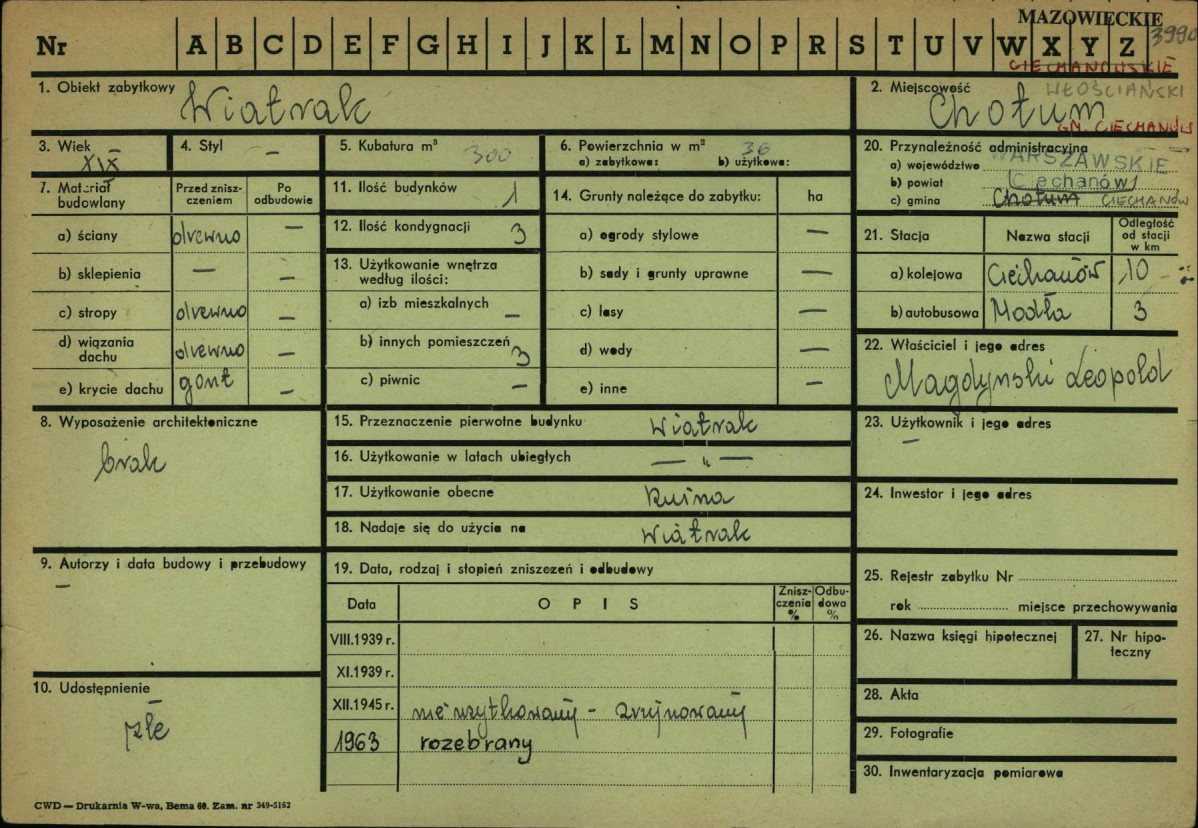 MAZOWIECKIE
Nr A B C D E F G H I J K L M N O P R S T U V W X Y Z 3990
CIECHANOWSKIE
1. Obiekt zabytkowy Wiatrak
2. Miejscowość WŁOŚCIAŃSKI
Chotum
GM. CIECHANÓW
3. Wiek XIX
4. Styl —
5. Kubatura m³ 300
6. Powierzchnia w m² 36
a) zabytkowa: b) użytkowa:
20. Przynależność administracyjna
a) województwo WARSZAWSKIE
b) powiat Ciechanów
c) gmina Chotum CIECHANÓW
7. Materiał budowlany
Przed zniszczeniem
Po odbudowie
a) ściany drewno —
b) sklepienia — —
c) stropy drewno —
d) wiązania dachu drewno —
e) krycie dachu gont —
11. Ilość budynków 1
12. Ilość kondygnacji 3
13. Użytkowanie wnętrza według ilości:
a) izb mieszkalnych —
b) innych pomieszczeń 3
c) piwnic —
14. Grunty należące do zabytku: ha
a) ogrody stylowe —
b) sady i grunty uprawne —
c) lasy —
d) wody —
e) inne —
21. Stacja Nazwa stacji Odległość od stacji w km
a) kolejowa Ciechanów 10
b) autobusowa Modła 3
22. Właściciel i jego adres
Magdyński Leopold
8. Wyposażenie architektoniczne
brak
15. Przeznaczenie pierwotne budynku Wiatrak
16. Użytkowanie w latach ubiegłych — „ —
17. Użytkowanie obecne Ruina
18. Nadaje się do użycia na Wiatrak
23. Użytkownik i jego adres
—
24. Inwestor i jego adres
9. Autorzy i data budowy i przebudowy
—
19. Data, rodzaj i stopień zniszczeń i odbudowy
Data OPIS Zniszczenia % Odbudowa %
VIII.1939 r.
XI.1939 r.
XII.1945 r. nie użytkowany - zrujnowany
1963 rozebrany
10. Udostępnienie
źle
25. Rejestr zabytku Nr
rok miejsce przechowywania
26. Nazwa księgi hipotecznej
27. Nr hipoteczny
28. Akta
29. Fotografie
30. Inwentaryzacja pomiarowa
CWD — Drukarnia W-wa, Bema 60. Zam. nr 349-5162